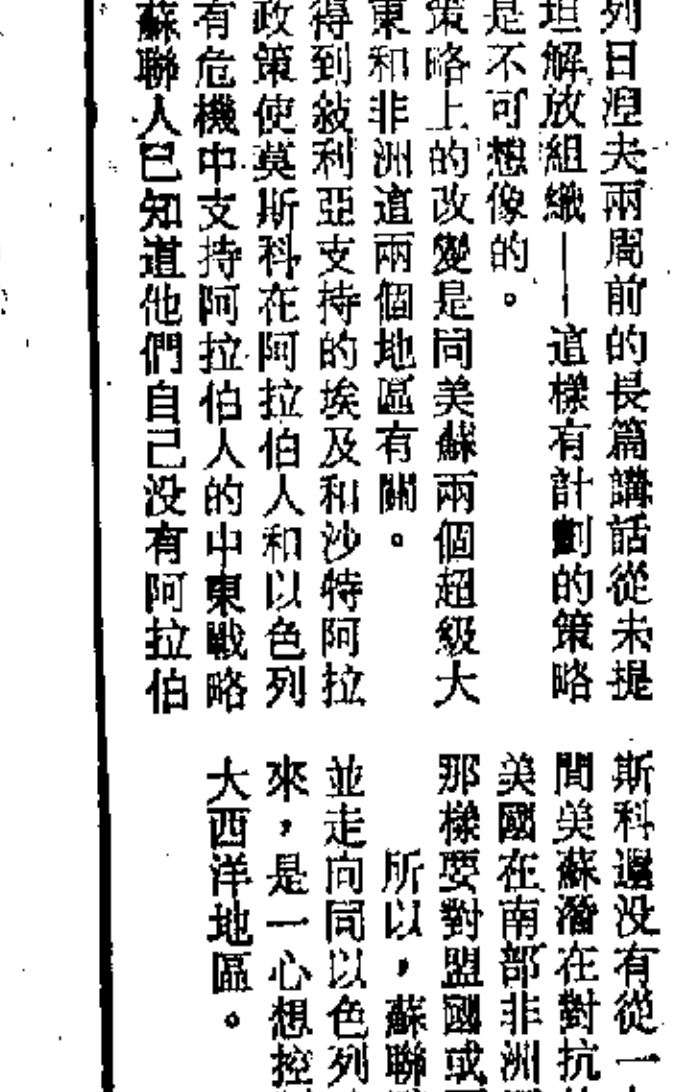 列日涅夫兩周前的長篇講話從未提
坦解放組織——這樣有計劃的策略
是不可想像的。
策略上的改變是同美蘇兩個超級大
東和非洲這兩個地區有關。
得到敍利亞支持的埃及和沙特阿拉
政策使莫斯科在阿拉伯人和以色列
有危機中支持阿拉伯人的中東戰略
蘇聯人已知道他們自己没有阿拉伯
斯科還没有從一
間美蘇潛在對抗
美國在南部非洲
那樣要對盟國或
所以，蘇聯
並走向同以色列
來，是一心想控
大西洋地區。